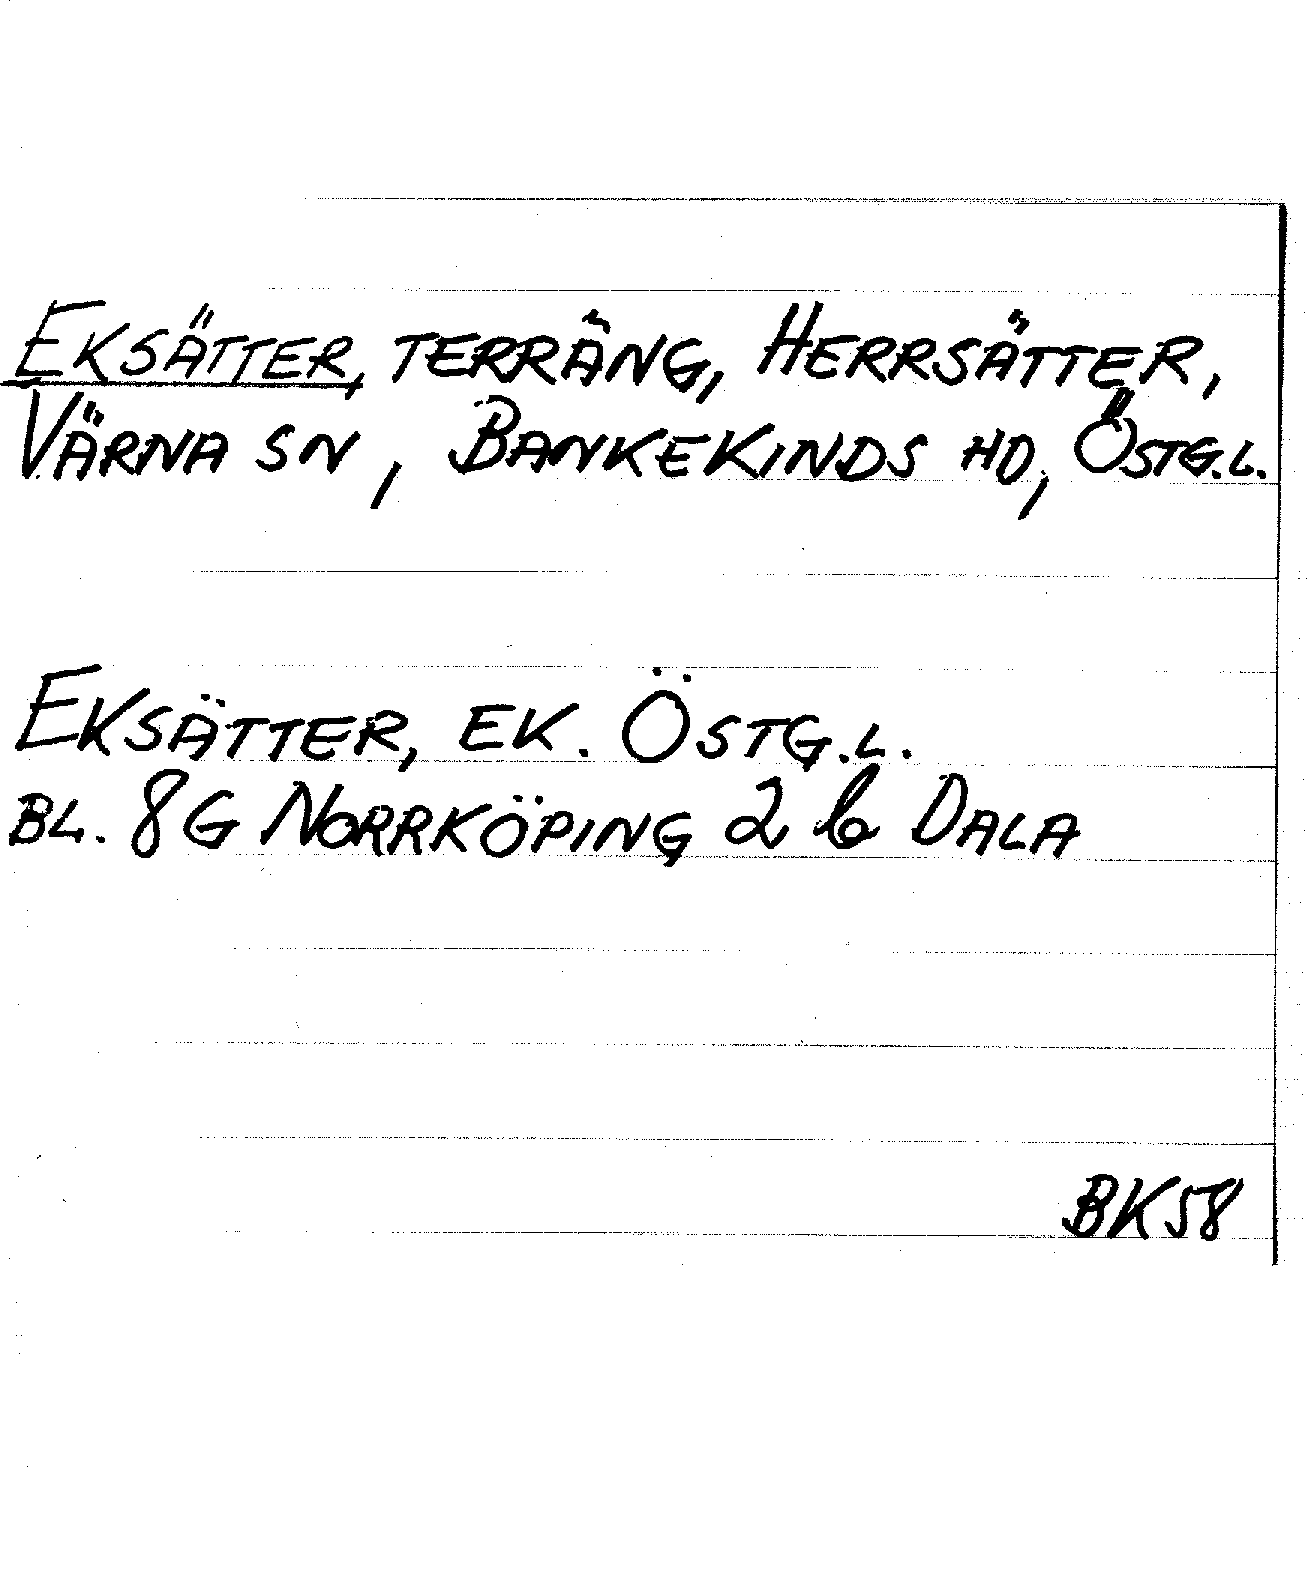 EKSÄTTER, TERRÄNG, HERRSÄTTER,
VÄRNA SN, BANKEKINDS HD, ÖSTG.L.
EKSÄTTER, EK. ÖSTG.L.
BL. 8G NORRKÖPING 2 b DALA
BK58